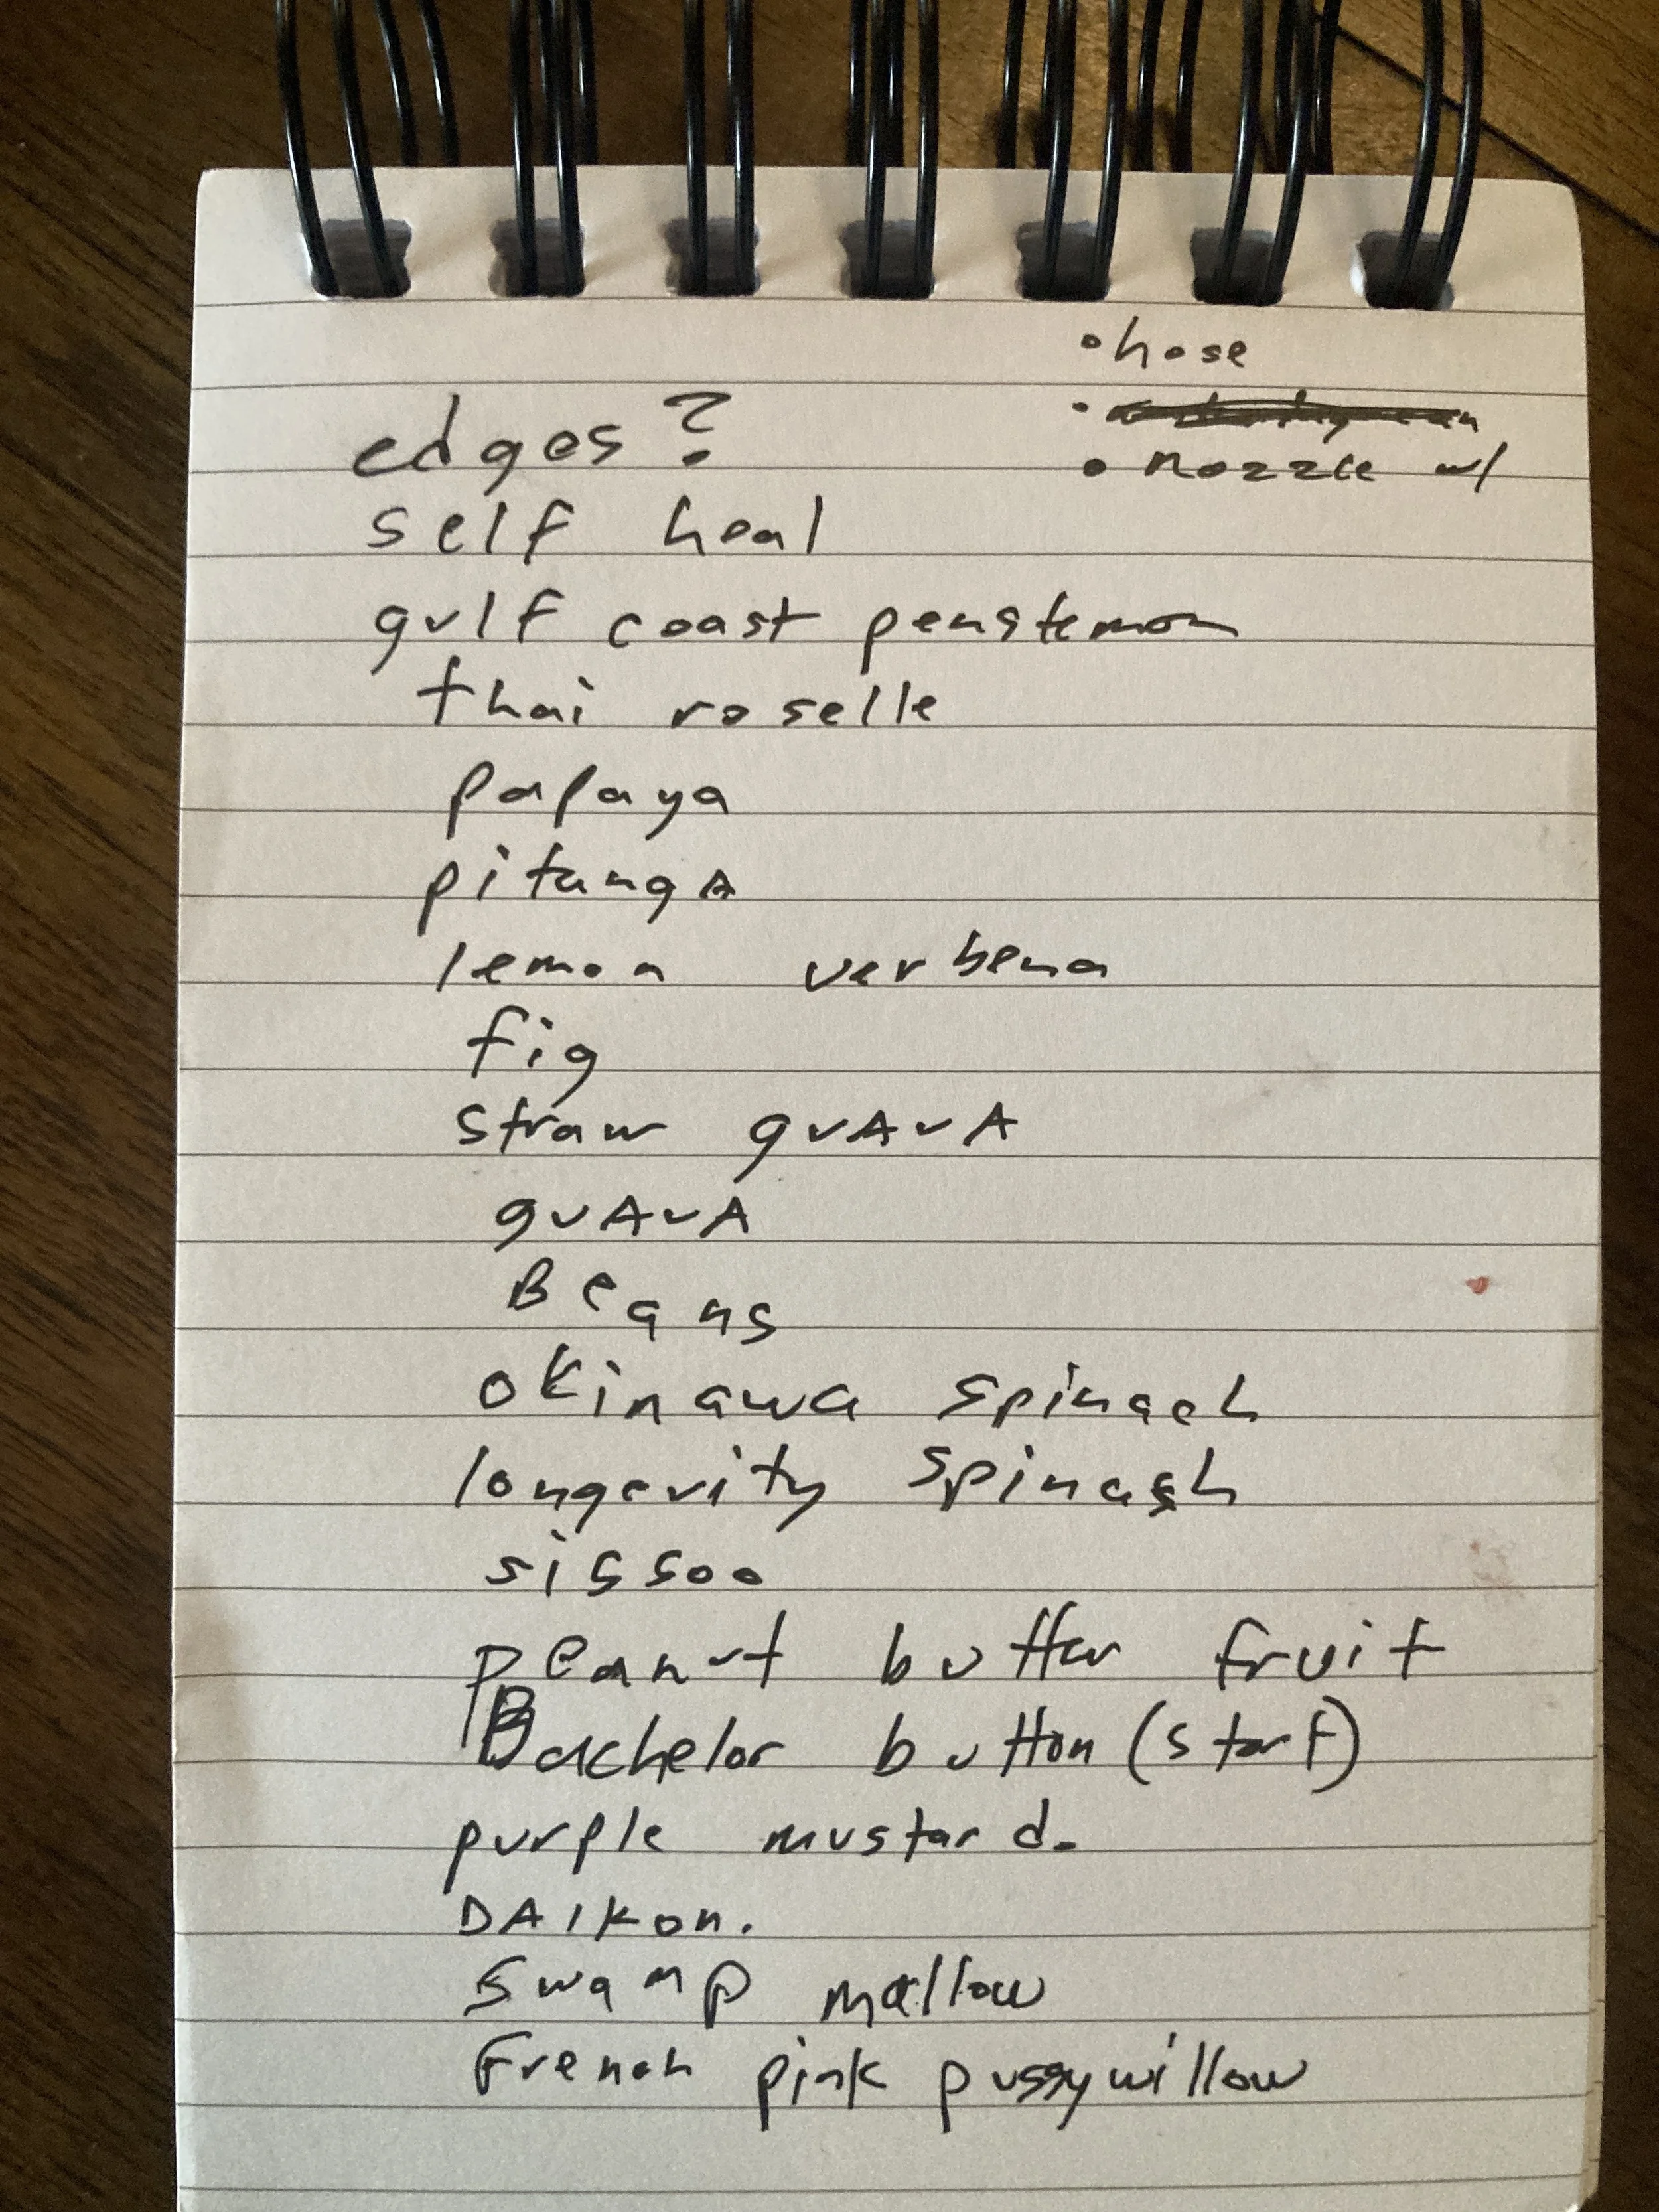 • hose
•
edges?
• nozzle w/
self heal
gulf coast penstemon
thai roselle
papaya
pitangA
lemon verbena
fig
straw guAvA
guAvA
Beans
okinawa spinach
longevity spinach
sissoo
peanut butter fruit
Bachelor button (start)
purple mustard.
DAIKon.
swamp mallow
French pink pussywillow